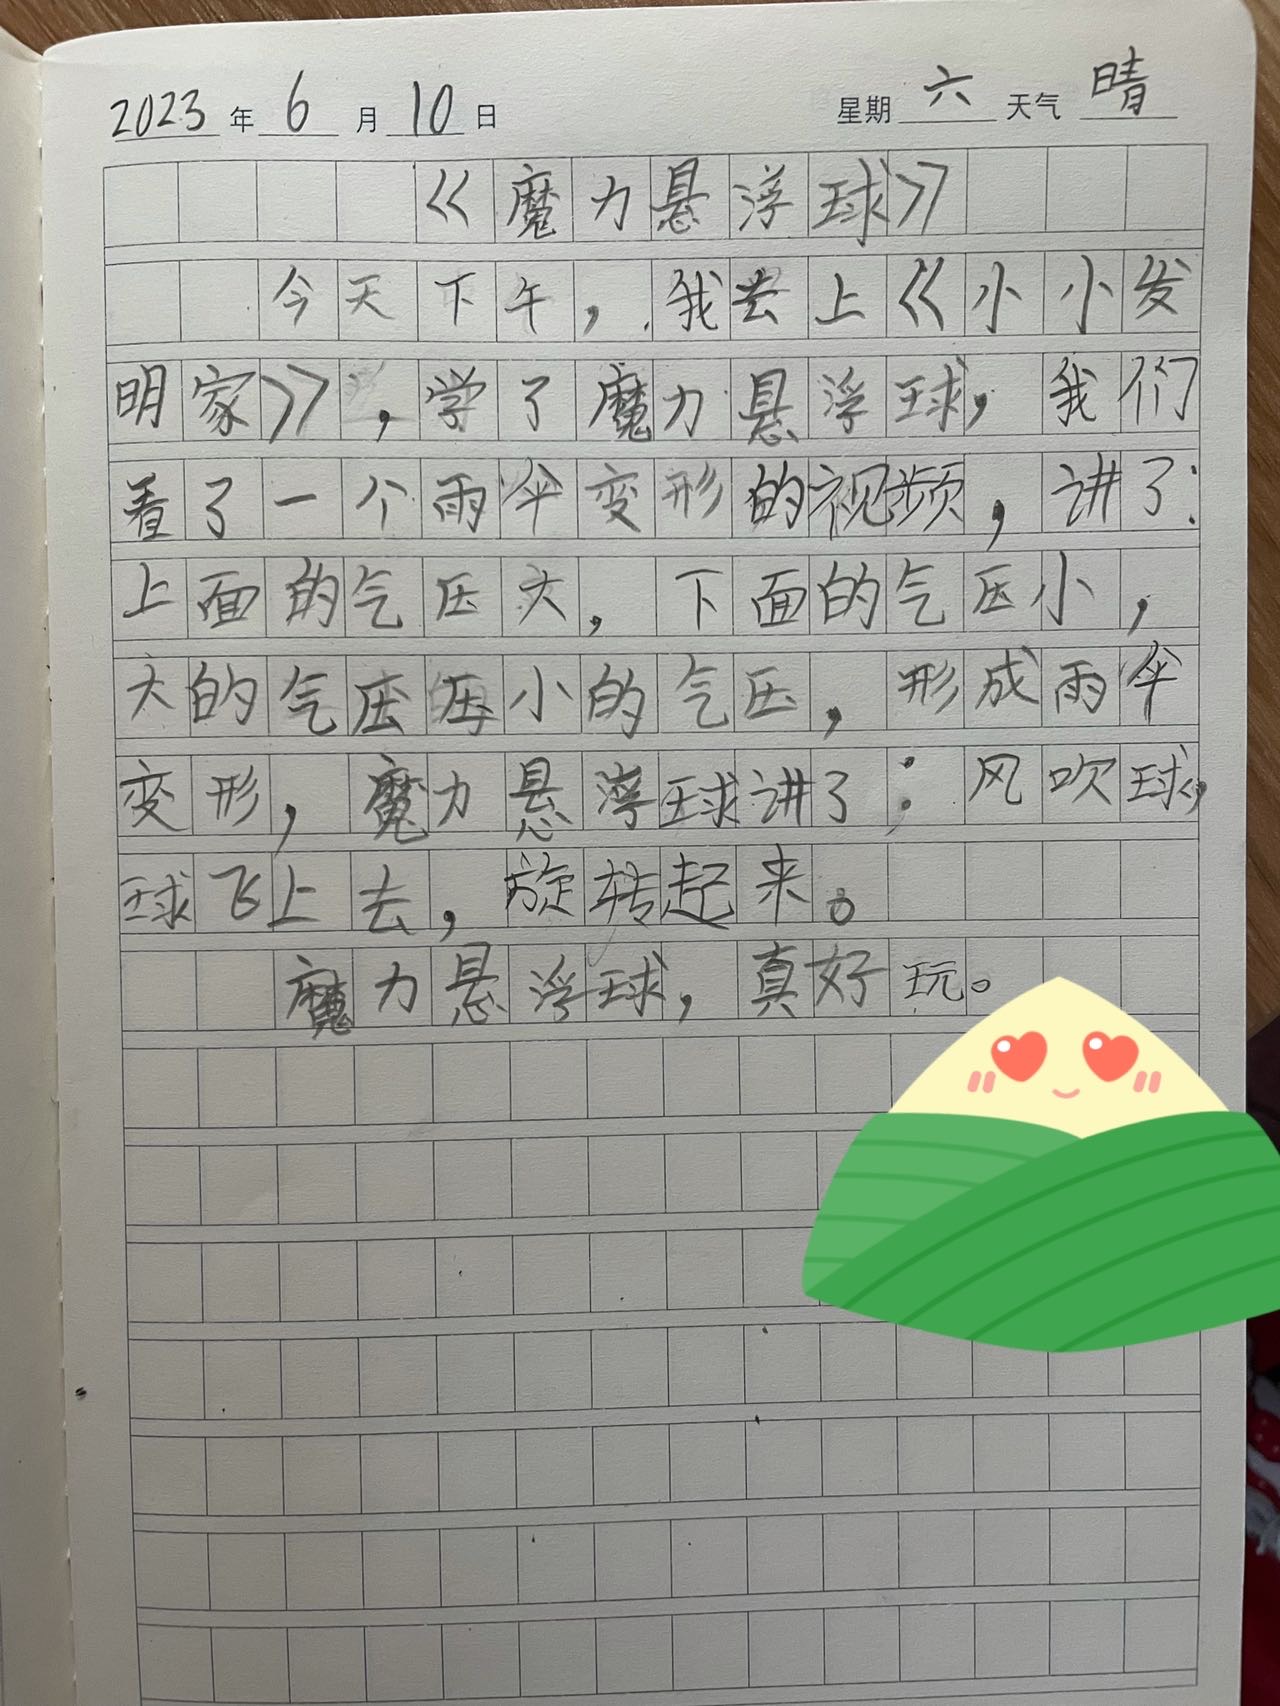 2023年6月10日 星期六 天气晴
《魔力悬浮球》
今天下午，我去上《小小发
明家》，学了魔力悬浮球，我们
看了一个雨伞变形的视频，讲了：
上面的气压大，下面的气压小，
大的气压压小的气压，形成雨伞
变形，魔力悬浮球讲了：风吹球，
球飞上去，旋转起来。
魔力悬浮球，真好玩。